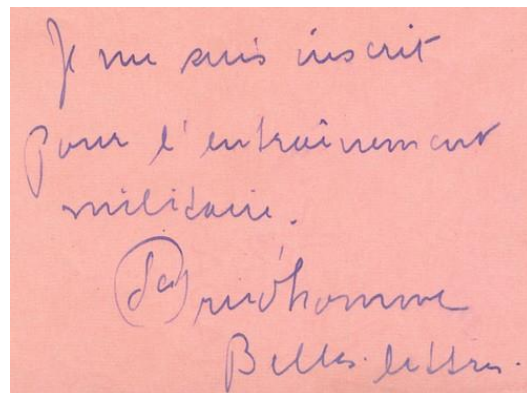 Je me suis inscrit
pour l'entraînement
militaire.
(Sa) Prud'homme
Belles-lettres.